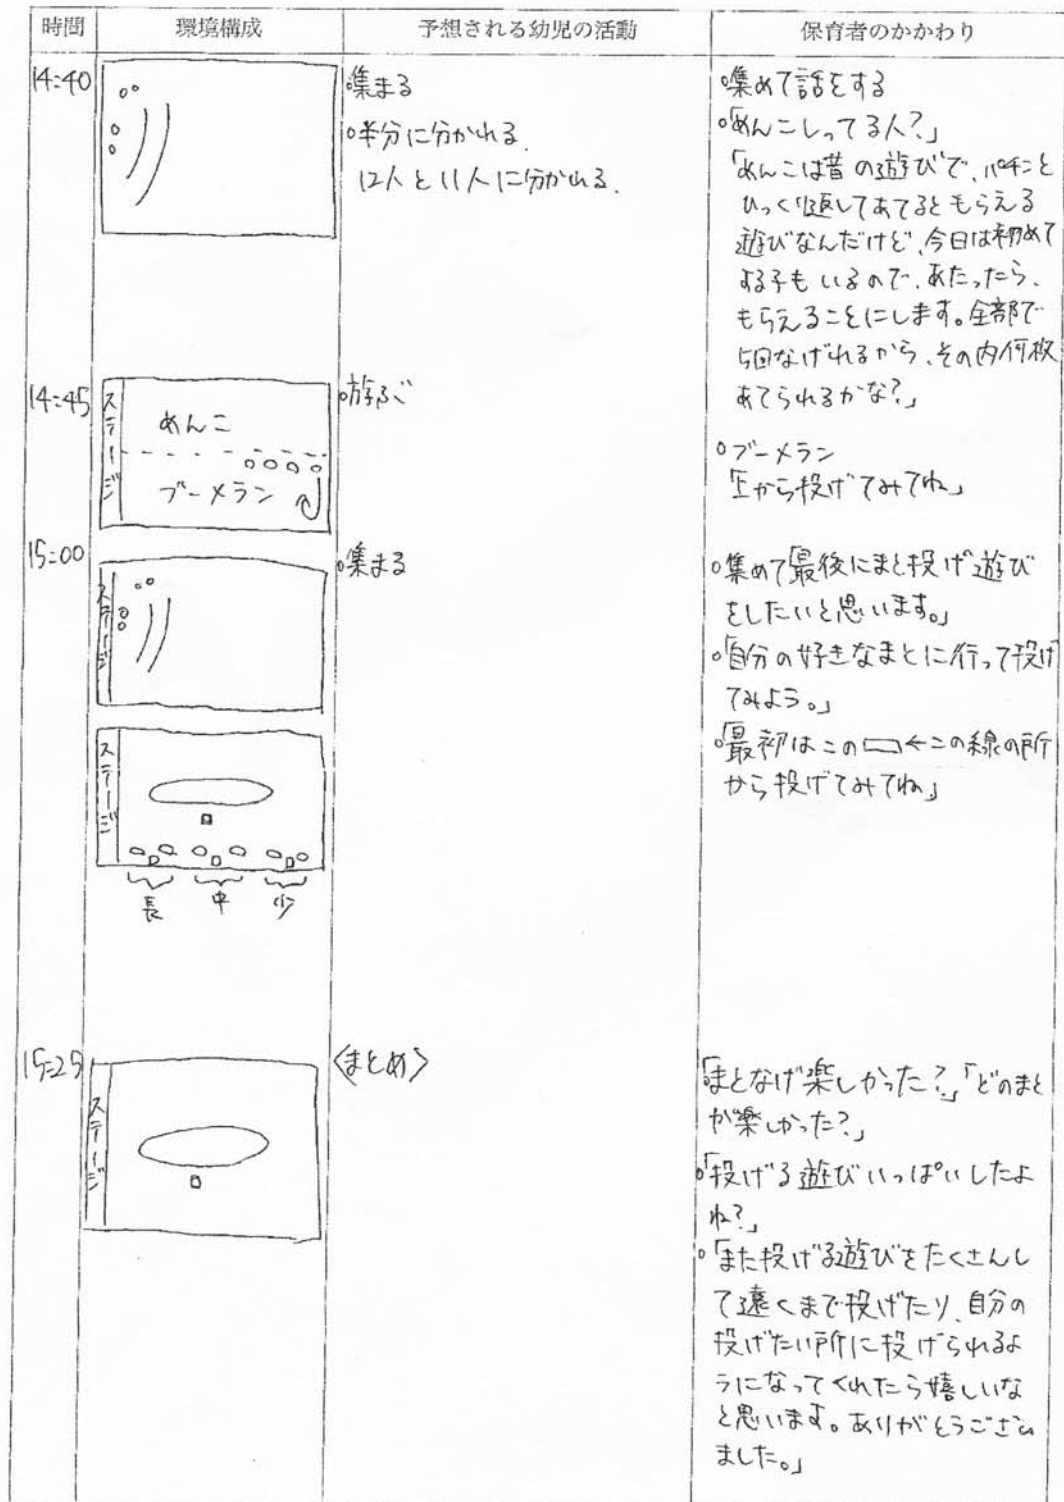 時間
環境構成
予想される幼児の活動
保育者のかかわり
14:40
○集まる
○半分に分かれる.
12人と11人に分かれる.
○集めて話をする
○「めんこしってる人?」
「めんこは昔の遊びで、パチンと
ひっくり返してあてるともらえる
遊びなんだけど、今日は初めて
する子もいるので、あたったら、
もらえることにします。全部で
5回なげれるから、その内何枚
あてられるかな?」
14:45
ステージ
めんこ
ブーメラン
○遊ぶ
○ブーメラン
「上から投げてみてね」
15:00
ステージ
○集まる
○集めて「最後にまと投げ遊び
をしたいと思います。」
○「自分の好きなまとに行って投げ
てみよう。」
○「最初はこの▭←この線の所
から投げてみてね」
ステージ
長 中 少
15:25
ステージ
〈まとめ〉
「まとなげ楽しかった?」「どのまと
が楽しかった?」
○「投げる遊びいっぱいしたよ
ね?」
○「また投げる遊びをたくさんし
て遠くまで投げたり、自分の
投げたい所に投げられるよ
うになってくれたら嬉しいな
と思います。ありがとうござい
ました。」